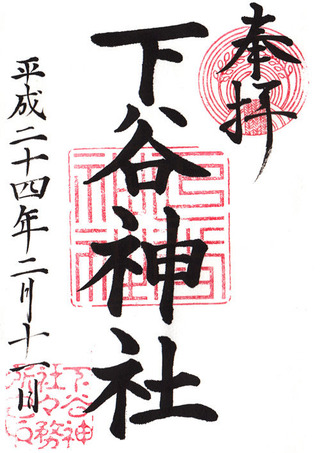 奉拝
下谷神社
平成二十四年二月十一日
下谷神
社々務
所之印